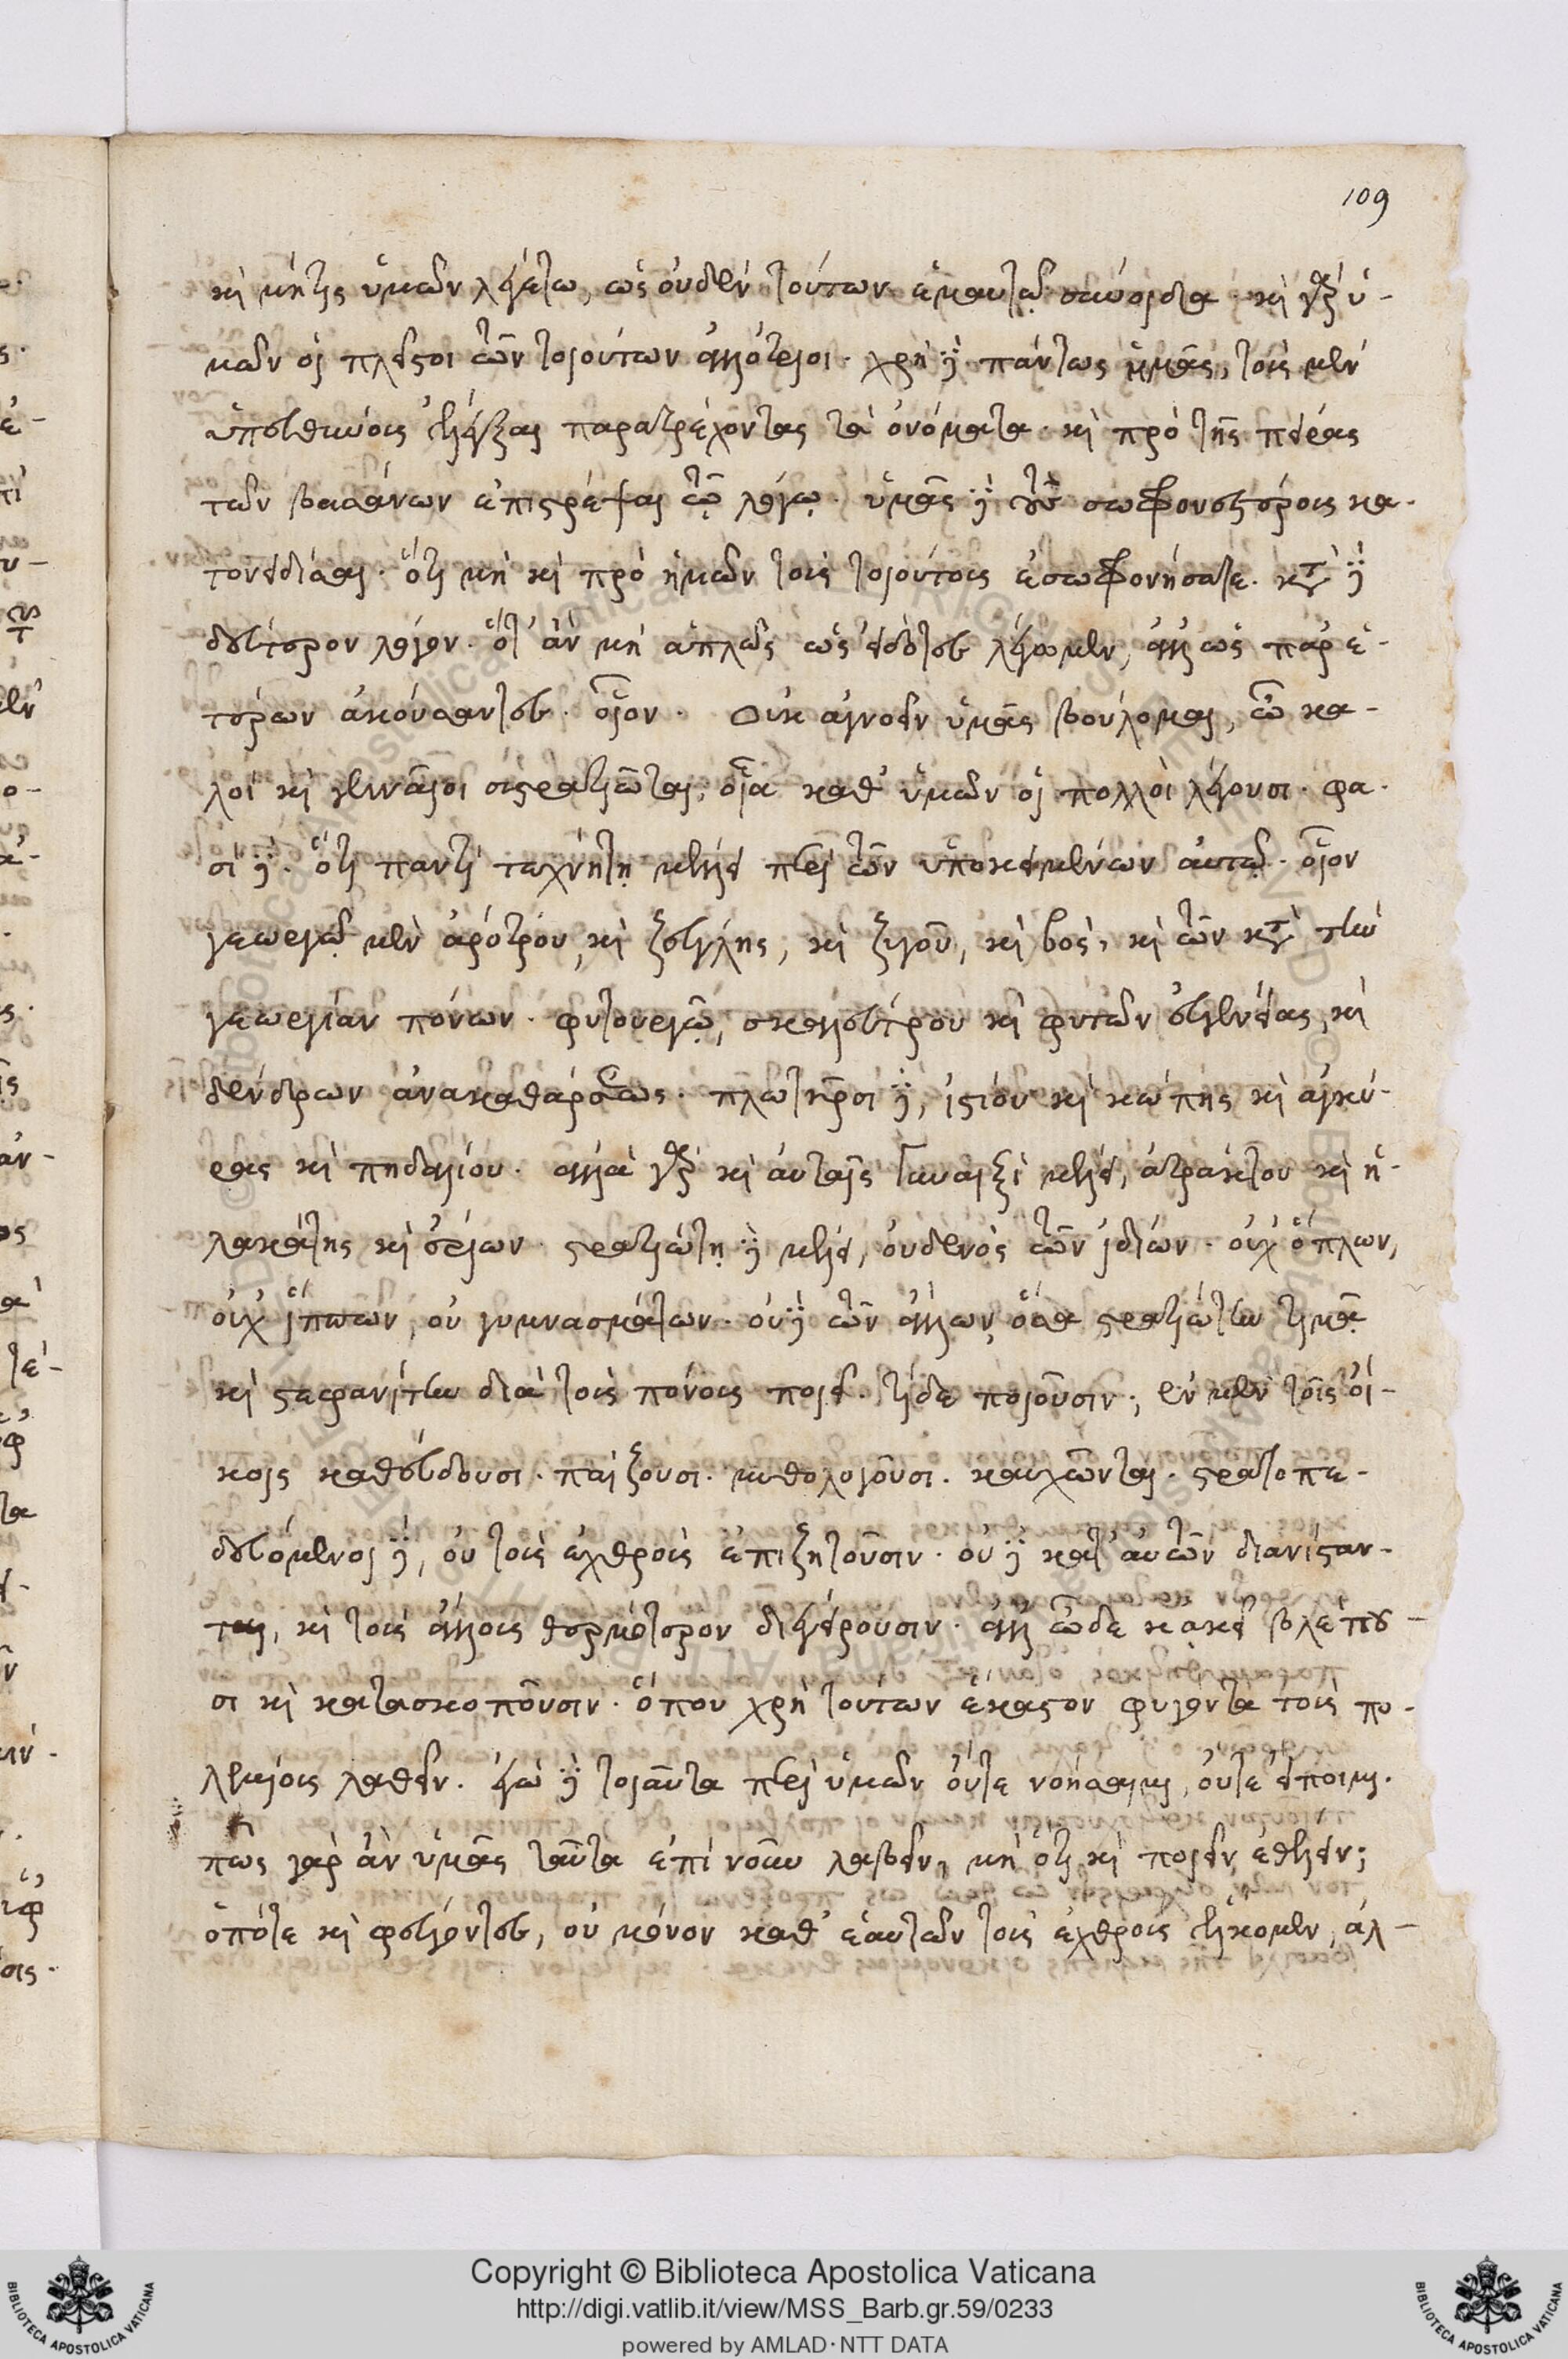 109
καὶ μήτις ὑμῶν λεγέτω, ὡς οὐδὲν τούτων ἐμαυτῷ σύνοιδα. καὶ γὰρ ὑ-
μῶν οἱ πλεῖστοι τῶν τοιούτων ἀλλότριοι. χρὴ δὲ πάντως ἡμᾶς, τοὺς μὲν
ὑπευθύνους ἐλέγξαι παρατρέχοντας τὰ ὀνόματα. καὶ πρὸ τῆς πείρας
τῶν βασάνων ἐπιστρέψαι τῷ λόγῳ. ὑμᾶς δὲ τοὺς σωφρονεστέρους κα-
τονειδίσαι. ὅτι μὴ καὶ πρὸ ἡμῶν τοὺς τοιούτους ἐσωφρονήσατε. κατὰ δὲ
δεύτερον λόγον. ὅτ' ἂν μὴ ἁπλῶς ὡς εἰδότες λέγωμεν, ἀλλ' ὡς παρ' ἑ-
τέρων ἀκούσαντες. οἷον. Οὐκ ἀγνοεῖν ὑμᾶς βούλομαι, ὦ κα-
λοὶ καὶ γενναῖοι στρατιῶται, οἷα καθ' ὑμῶν οἱ πολλοὶ λέγουσι. φα-
σὶ δὲ. ὅτι παντὶ τεχνίτῃ μέλει περὶ τῶν ὑποκειμένων αὐτῷ. οἷον
γεωργῷ μὲν ἀρότρου, καὶ ζεύγλης, καὶ ζυγοῦ, καὶ βοὸς, καὶ τῶν κατὰ τὴν
γεωργίαν πόνων. φυτουργῷ, σκαλιστηρίου καὶ φυτῶν εὐγενείας, καὶ
δένδρων ἀνακαθάρσεως. πλωτῆρσι δὲ, ἱστίου καὶ κώπης καὶ ἀγκύ-
ρας καὶ πηδαλίου. ἀλλὰ γὰρ καὶ αὐταῖς γυναιξὶ μέλει, ἀτράκτου καὶ ἠ-
λακάτης καὶ ἐρίων. στρατιώτῃ δὲ μέλει, οὐδενὸς τῶν ἰδίων. οὐχ ὅπλων,
οὐχ ἵππων, οὐ γυμνασμάτων. οὐδὲ τῶν ἄλλων, ὅσα στρατιώτην τιμᾷ
καὶ στεφανίτην διὰ τοὺς πόνους ποιεῖ. τί δὲ ποιοῦσιν; ἐν μὲν τοῖς οἴ-
κοις καθεύδουσι. παίζουσι. μυθολογοῦσι. καυχῶνται. στρατοπε-
δευόμενοι δὲ, οὐ τοὺς ἐχθροὺς ἐπιζητοῦσιν. οὐδὲ κατ' αὐτῶν διανίσταν-
ται, καὶ τοὺς ἄλλους θερμότερον διεγείρουσιν. ἀλλ' ὧδε κἀκεῖ βλέπου-
σι καὶ κατασκοποῦσιν. ὅπου χρὴ τούτων ἕκαστον φυγόντα τοὺς πο-
λεμίους λαθεῖν. ἐγὼ δὲ τοιαῦτα περὶ ὑμῶν οὔτε νοήσαιμι, οὔτε εἴποιμι.
πῶς γὰρ ἂν ὑμᾶς ταῦτα ἐπὶ νοῦν λαβεῖν, μὴ ὅτι καὶ ποιεῖν ἐθέλειν;
ὁπότε καὶ φεύγοντες, οὐ μόνον καθ' ἑαυτῶν τοὺς ἐχθροὺς ἕλκομεν, ἀλ-
Copyright © Biblioteca Apostolica Vaticana
http://digi.vatlib.it/view/MSS_Barb.gr.59/0233
powered by AMLAD·NTT DATA
BIBLIOTECA APOSTOLICA VATICANA
BIBLIOTECA APOSTOLICA VATICANA